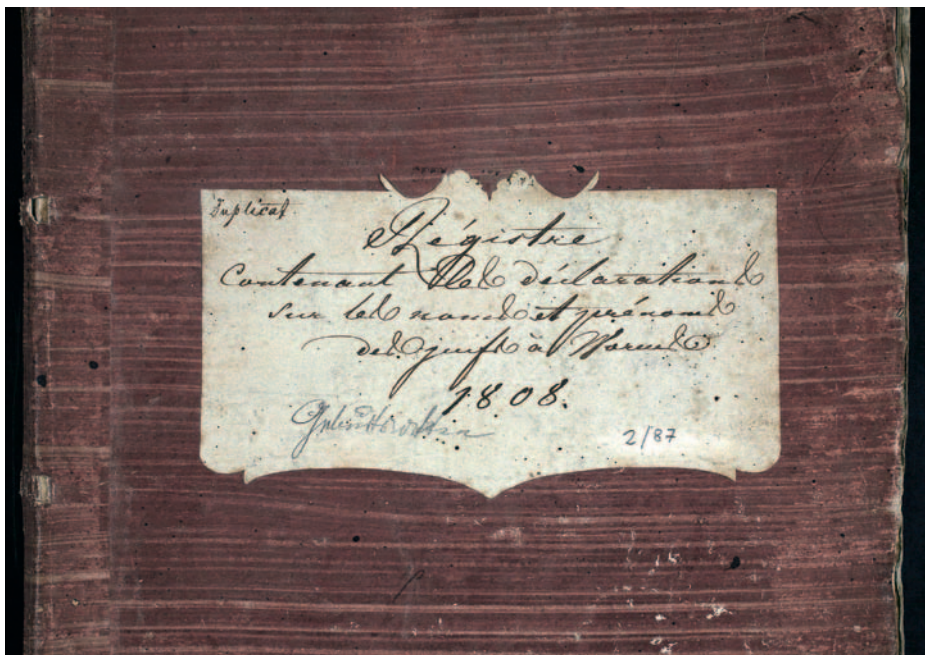 Duplicat
Régistre
Contenant les déclarations
sur les noms et prénoms
des juifs à Worms
1808.
2/87